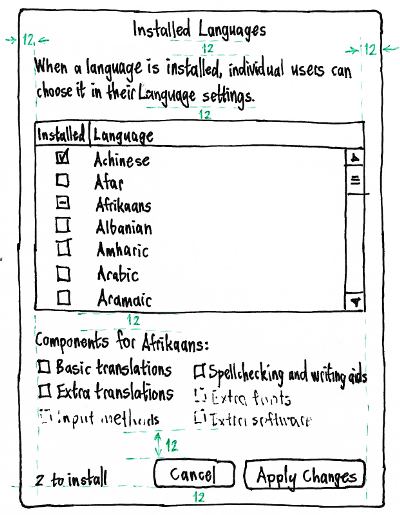 Installed Languages
12
12
12
When a language is installed, individual users can
choose it in their Language settings.
12
Installed Language
Achinese
Afar
Afrikaans
Albanian
Amharic
Arabic
Aramaic
12
Components for Afrikaans:
Basic translations
Spellchecking and writing aids
Extra translations
Extra fonts
Input methods
Extra software
12
2 to install
Cancel
Apply Changes
12